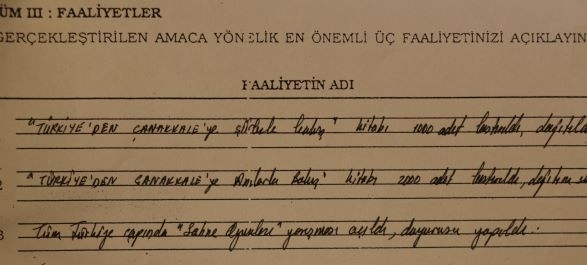 ÜM III : FAALİYETLER
GERÇEKLEŞTİRİLEN AMACA YÖNELİK EN ÖNEMLİ ÜÇ FAALİYETİNİZİ AÇIKLAYIN
FAALİYETİN ADI
"TÜRKİYE'DEN ÇANAKKALE'ye şiirlerle bakış" kitabı 1000 adet bastırıldı, dağıtıldı
2 "TÜRKİYE'DEN ÇANAKKALE'ye Anılarla Bakış" kitabı 2000 adet bastırıldı, dağıtım
3 Tüm Türkiye çapında "Sahne Oyunları" yarışması açıldı, duyurusu yapıldı.